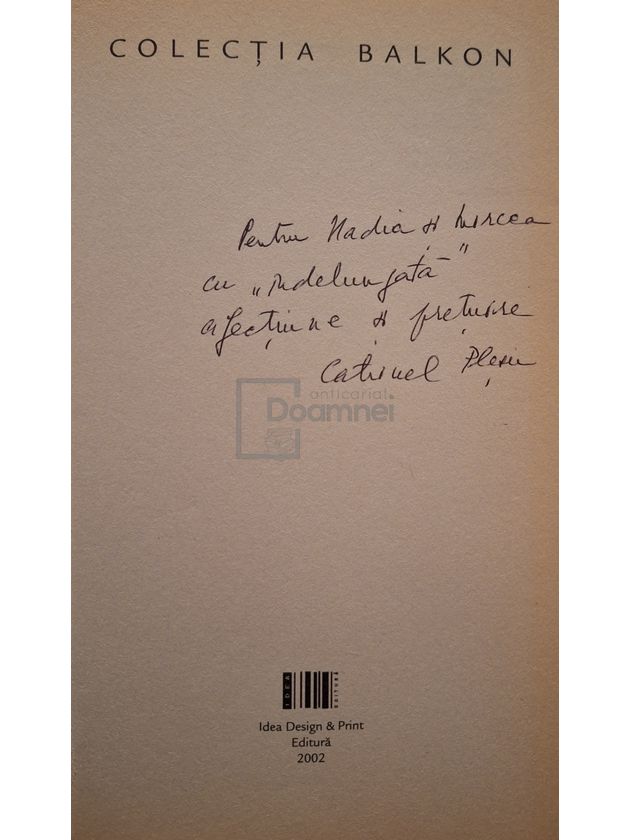 COLECȚIA BALKON
Pentru Nadia și Mircea
cu „îndelungată”
afecțiune și prețuire
Catrinel Pleșu
anticariat
Doamnei
IDEA
EDITURĂ
Idea Design & Print
Editură
2002